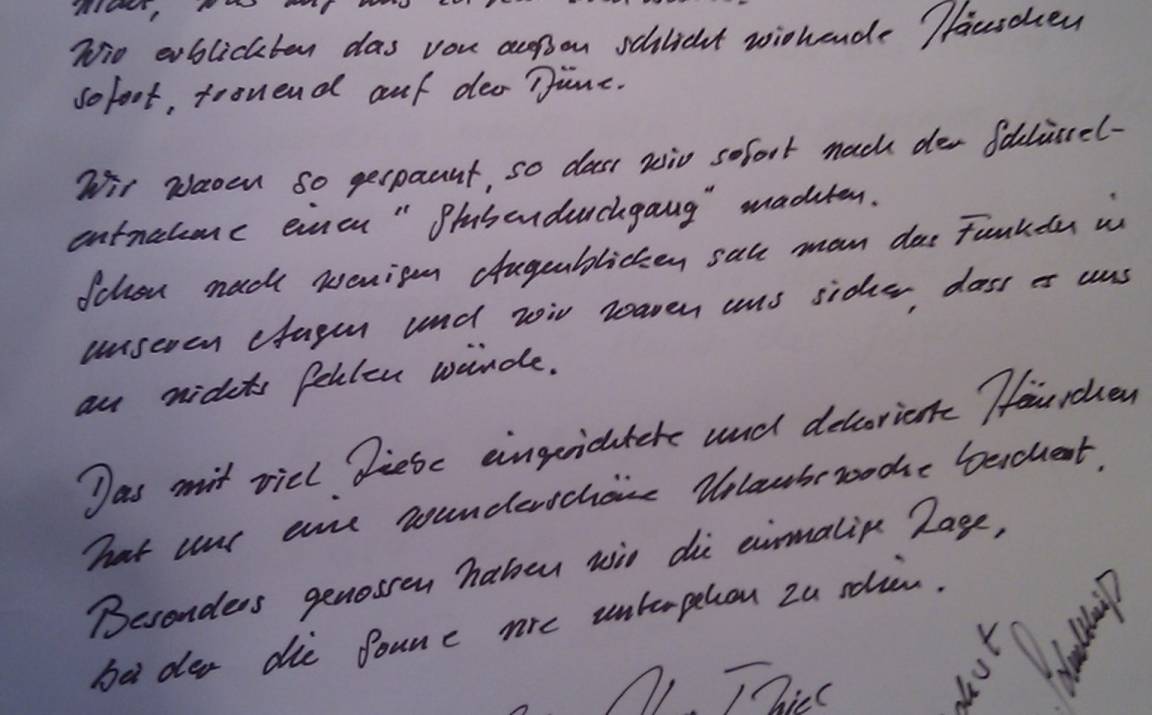 nicht, was auf uns
Wir erblickten das von außen schlicht wirkende Häuschen
sofort, tronend auf der Düne.
Wir waren so gespannt, so dass wir sofort nach der Schlüssel-
entnahme einen "Stubendurchgang" machten.
Schon nach wenigen Augenblicken sah man das Funkeln in
unseren Augen und wir waren uns sicher, dass es uns
an nichts fehlen würde.
Das mit viel Liebe eingerichtete und dekorierte Häuschen
hat uns eine wunderschöne Urlaubswoche beschert.
Besonders genossen haben wir die einmalige Lage,
bei der die Sonne nie untergehen zu schien.
Thiel